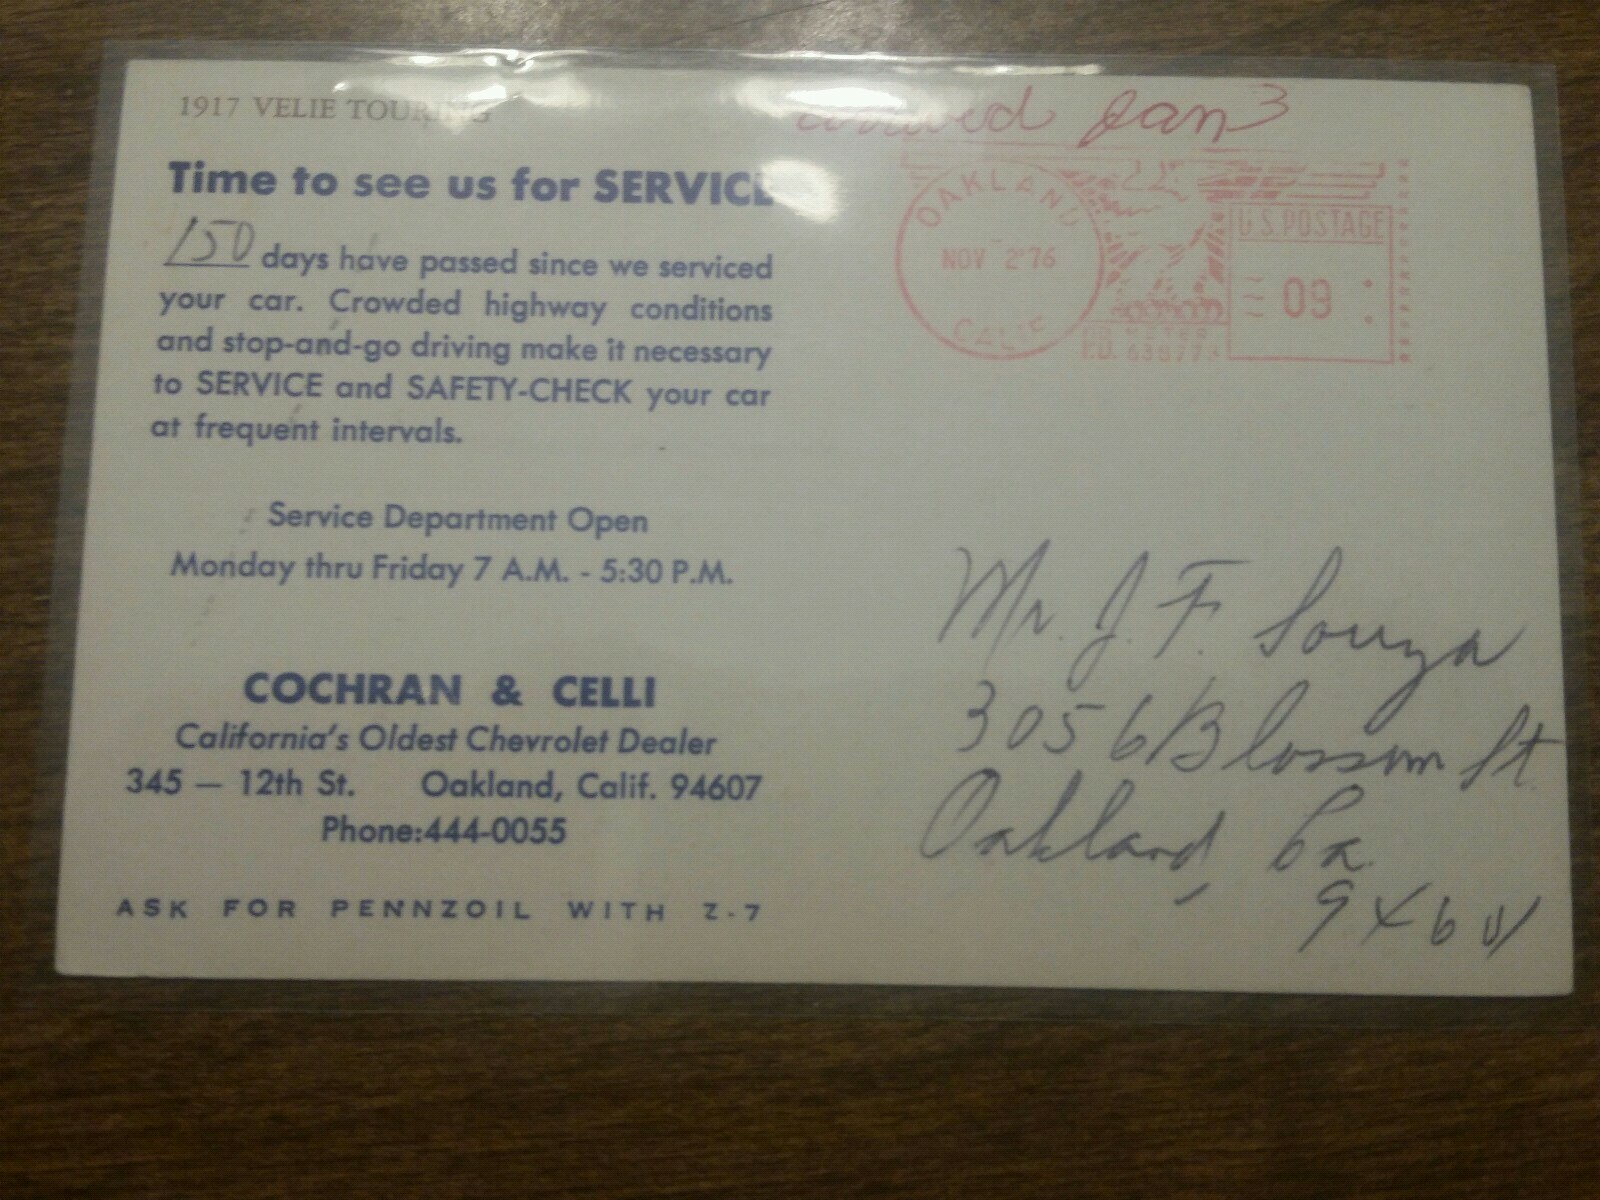 1917 VELIE TOURING
Jan 3
Time to see us for SERVICE
150 days have passed since we serviced
your car. Crowded highway conditions
and stop-and-go driving make it necessary
to SERVICE and SAFETY-CHECK your car
at frequent intervals.
Service Department Open
Monday thru Friday 7 A.M. - 5:30 P.M.
COCHRAN & CELLI
California's Oldest Chevrolet Dealer
345 — 12th St. Oakland, Calif. 94607
Phone:444-0055
ASK FOR PENNZOIL WITH Z-7
OAKLAND
NOV 2'76
CALIF
METER
U.S. POSTAGE
09
Mr. J. F. Souza
3056 Blossom St.
Oakland, Ca.